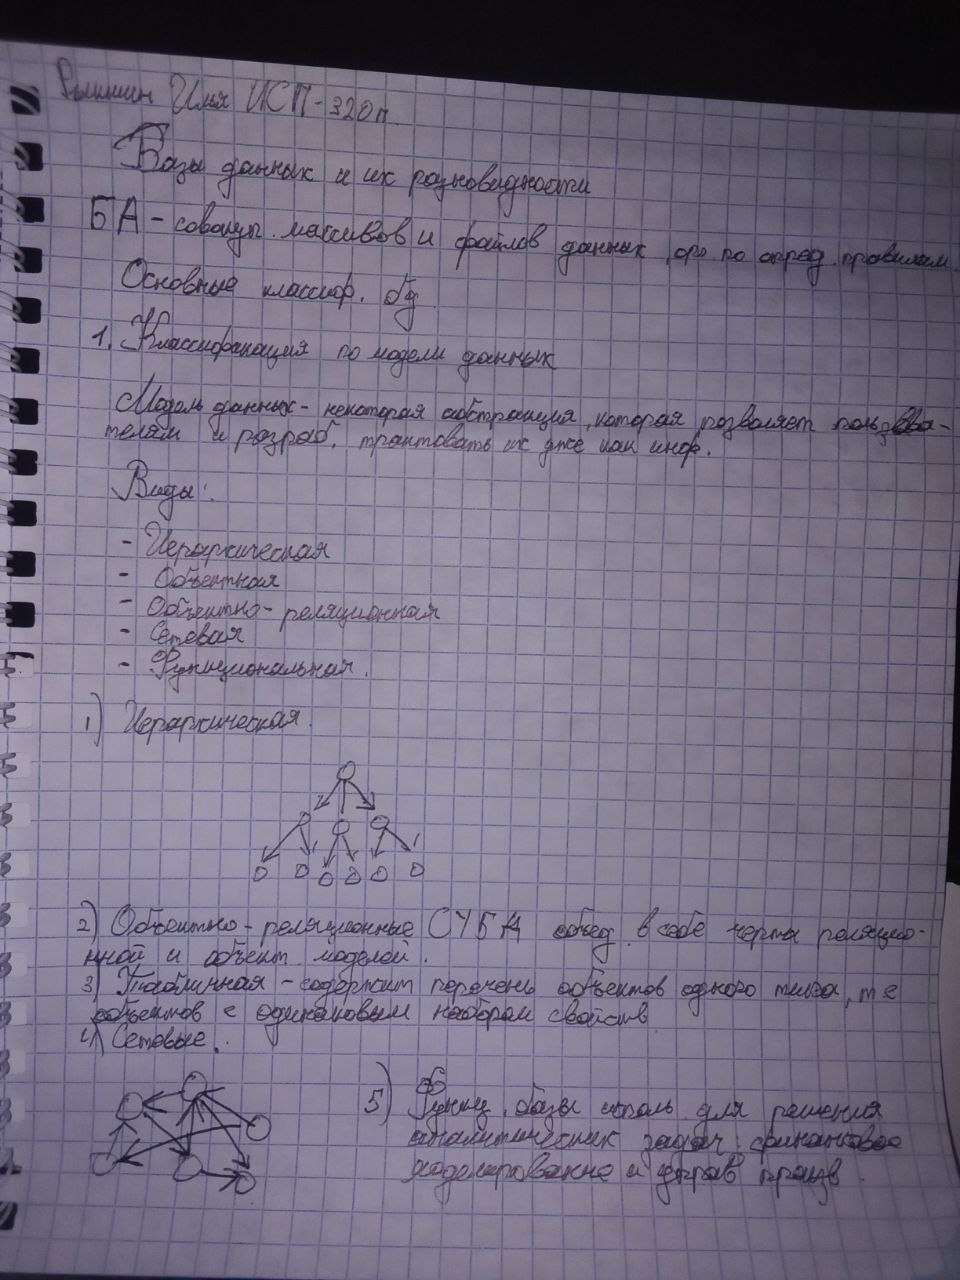 Илья ИСП-320п.
Базы данных и их разновидности
БД - совокуп. массивов и файлов данных, орг. по опред. правилам.
Основные классиф. бд.
1. Классификация по модели данных
Модель данных - некоторая абстракция, которая позволяет пользова-
телям и разраб. трактовать их уже как инф.
Виды:
- Иерархическая
- Объектная
- Объектно-реляционная
- Сетевая
- Функциональная.
1) Иерархическая.
2) Объектно-реляционные СУБД объед. в себе черты реляцио-
нной и объект. моделей.
3) Табличная - содержит перечень объектов одного типа, т е
объектов с одинаковым набором свойств
4) Сетевые.
5) Функц. базы исполь для решения
аналитических задач: финансовое
моделирование и управ произв.